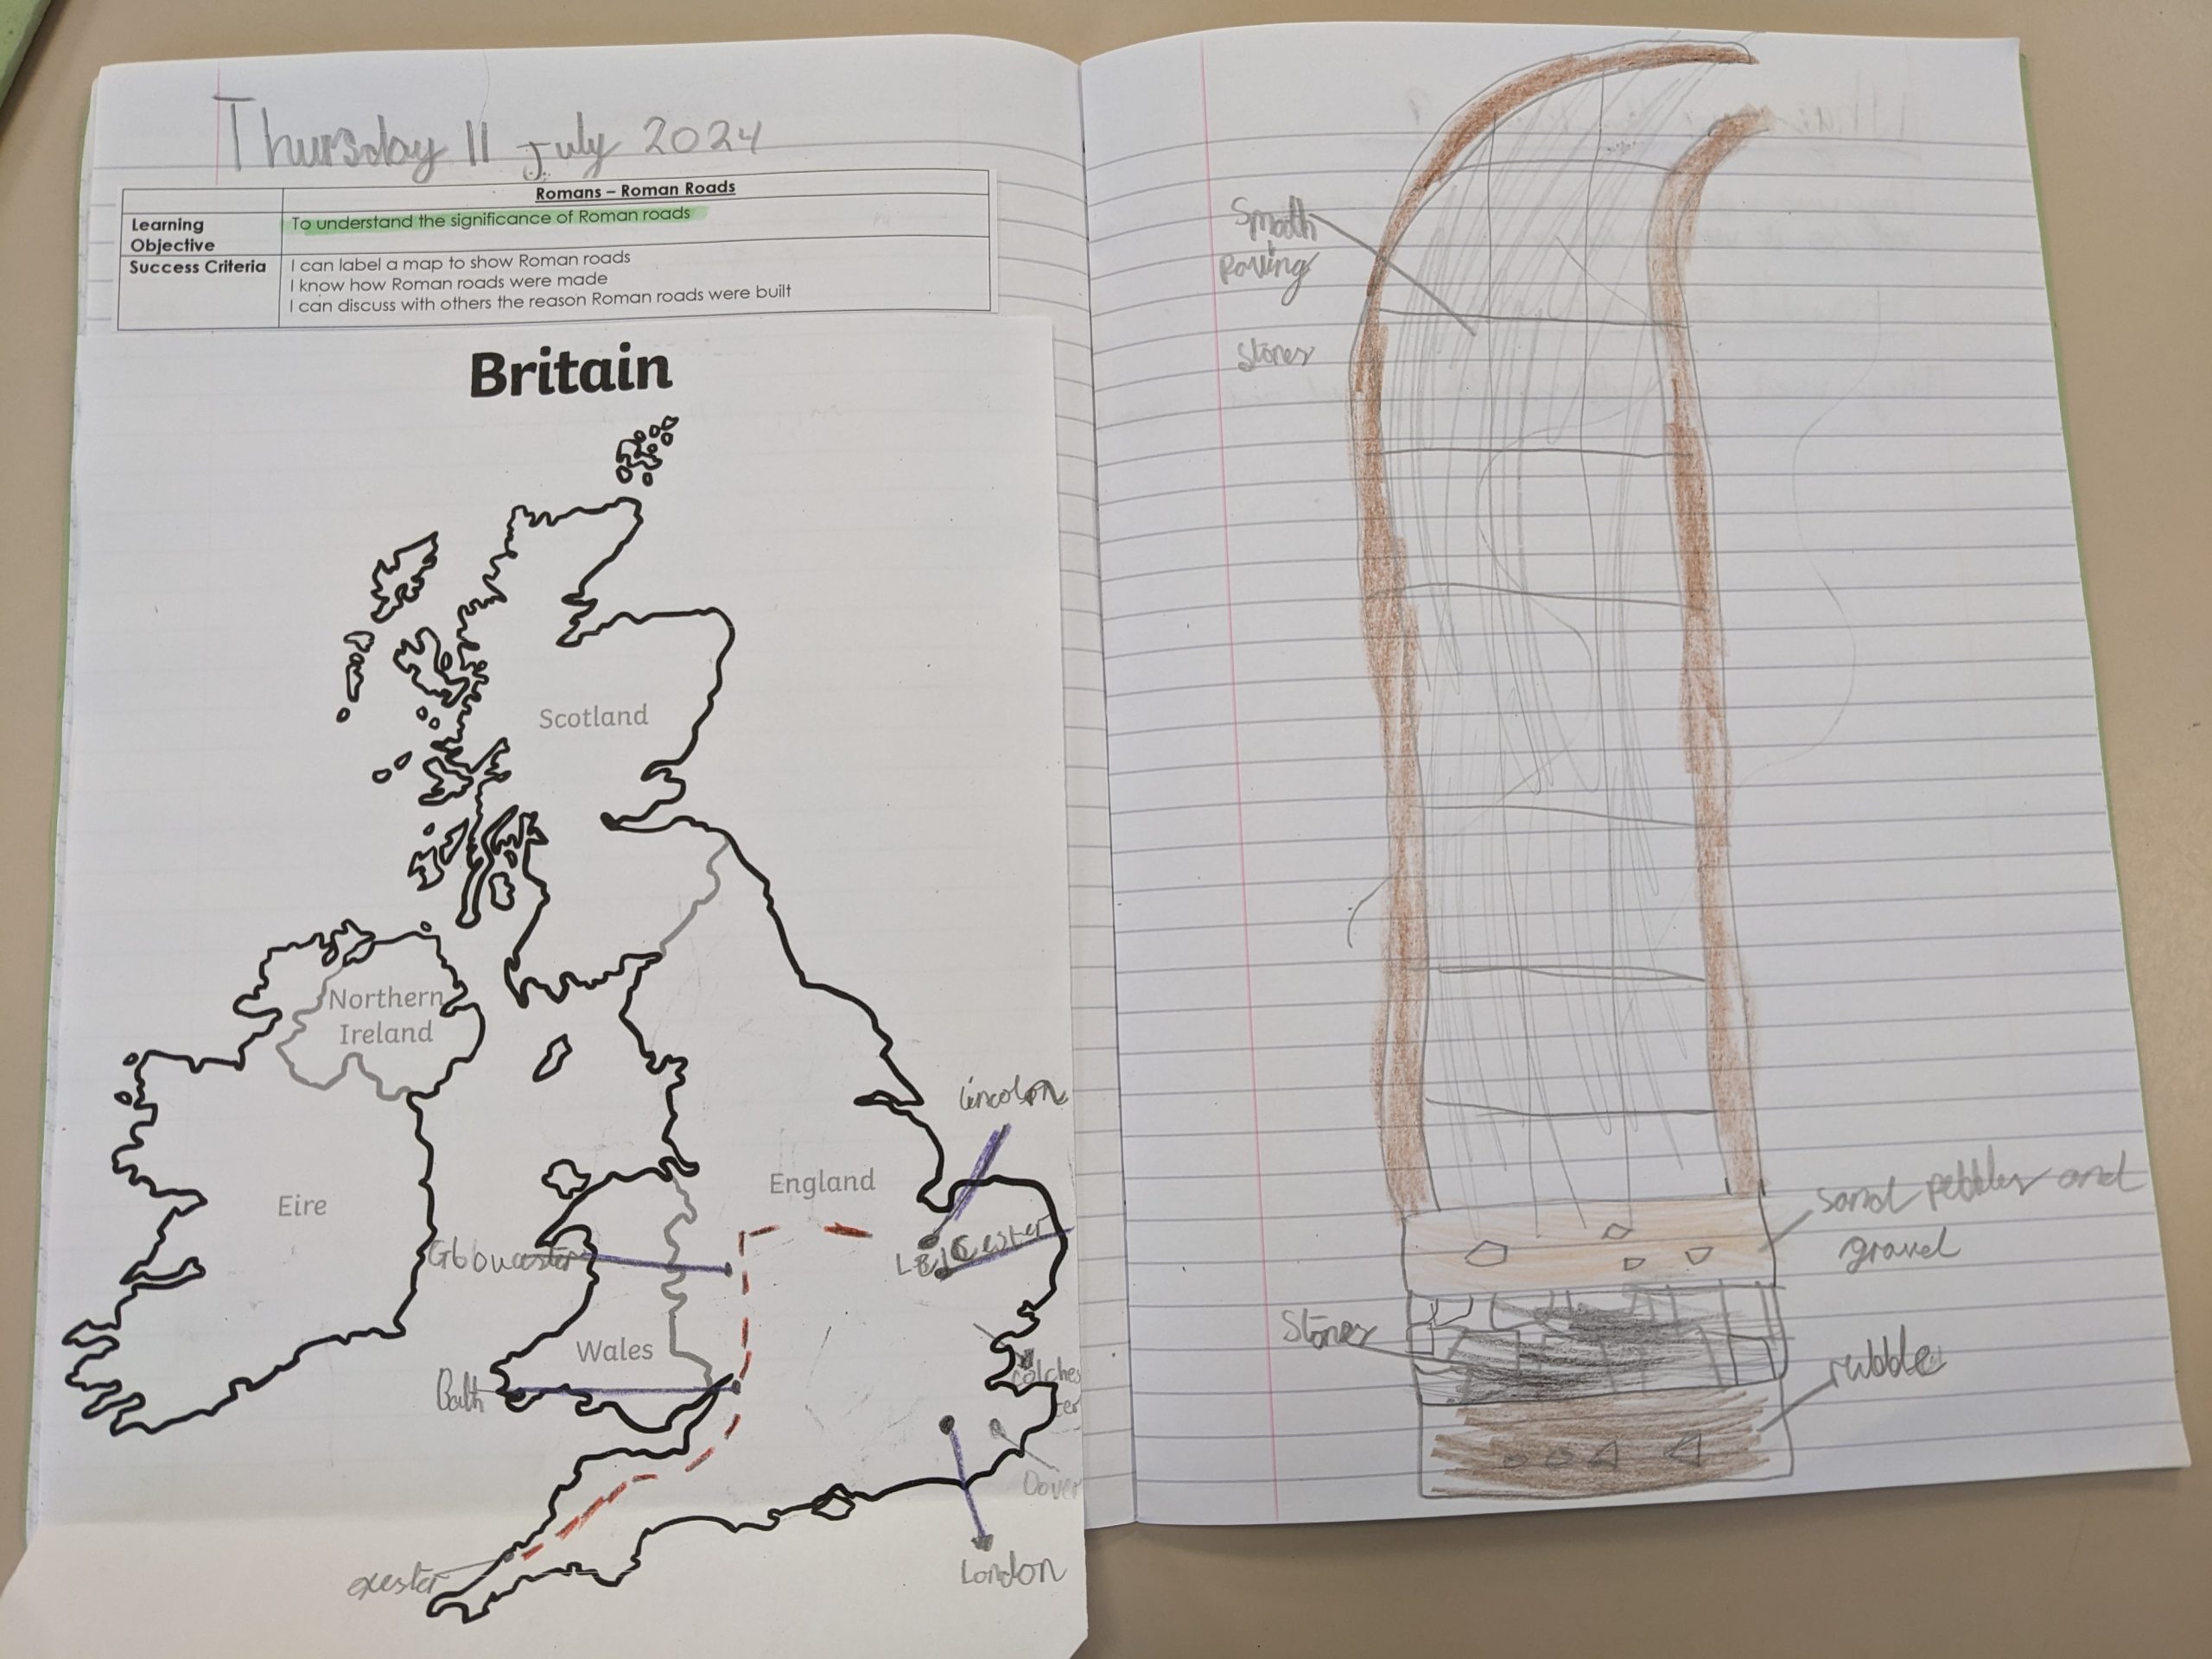 Thursday 11 July 2024
Romans – Roman Roads
Learning Objective
To understand the significance of Roman roads
Success Criteria
I can label a map to show Roman roads
I know how Roman roads were made
I can discuss with others the reason Roman roads were built
Britain
Scotland
Northern
Ireland
Eire
England
Wales
lincolon
Leicester
Glouwcester
Bath
Colches
ter
Dover
London
exester
Smooth
Paving
Stones
sand pebbles and
gravel
Stones
rubble